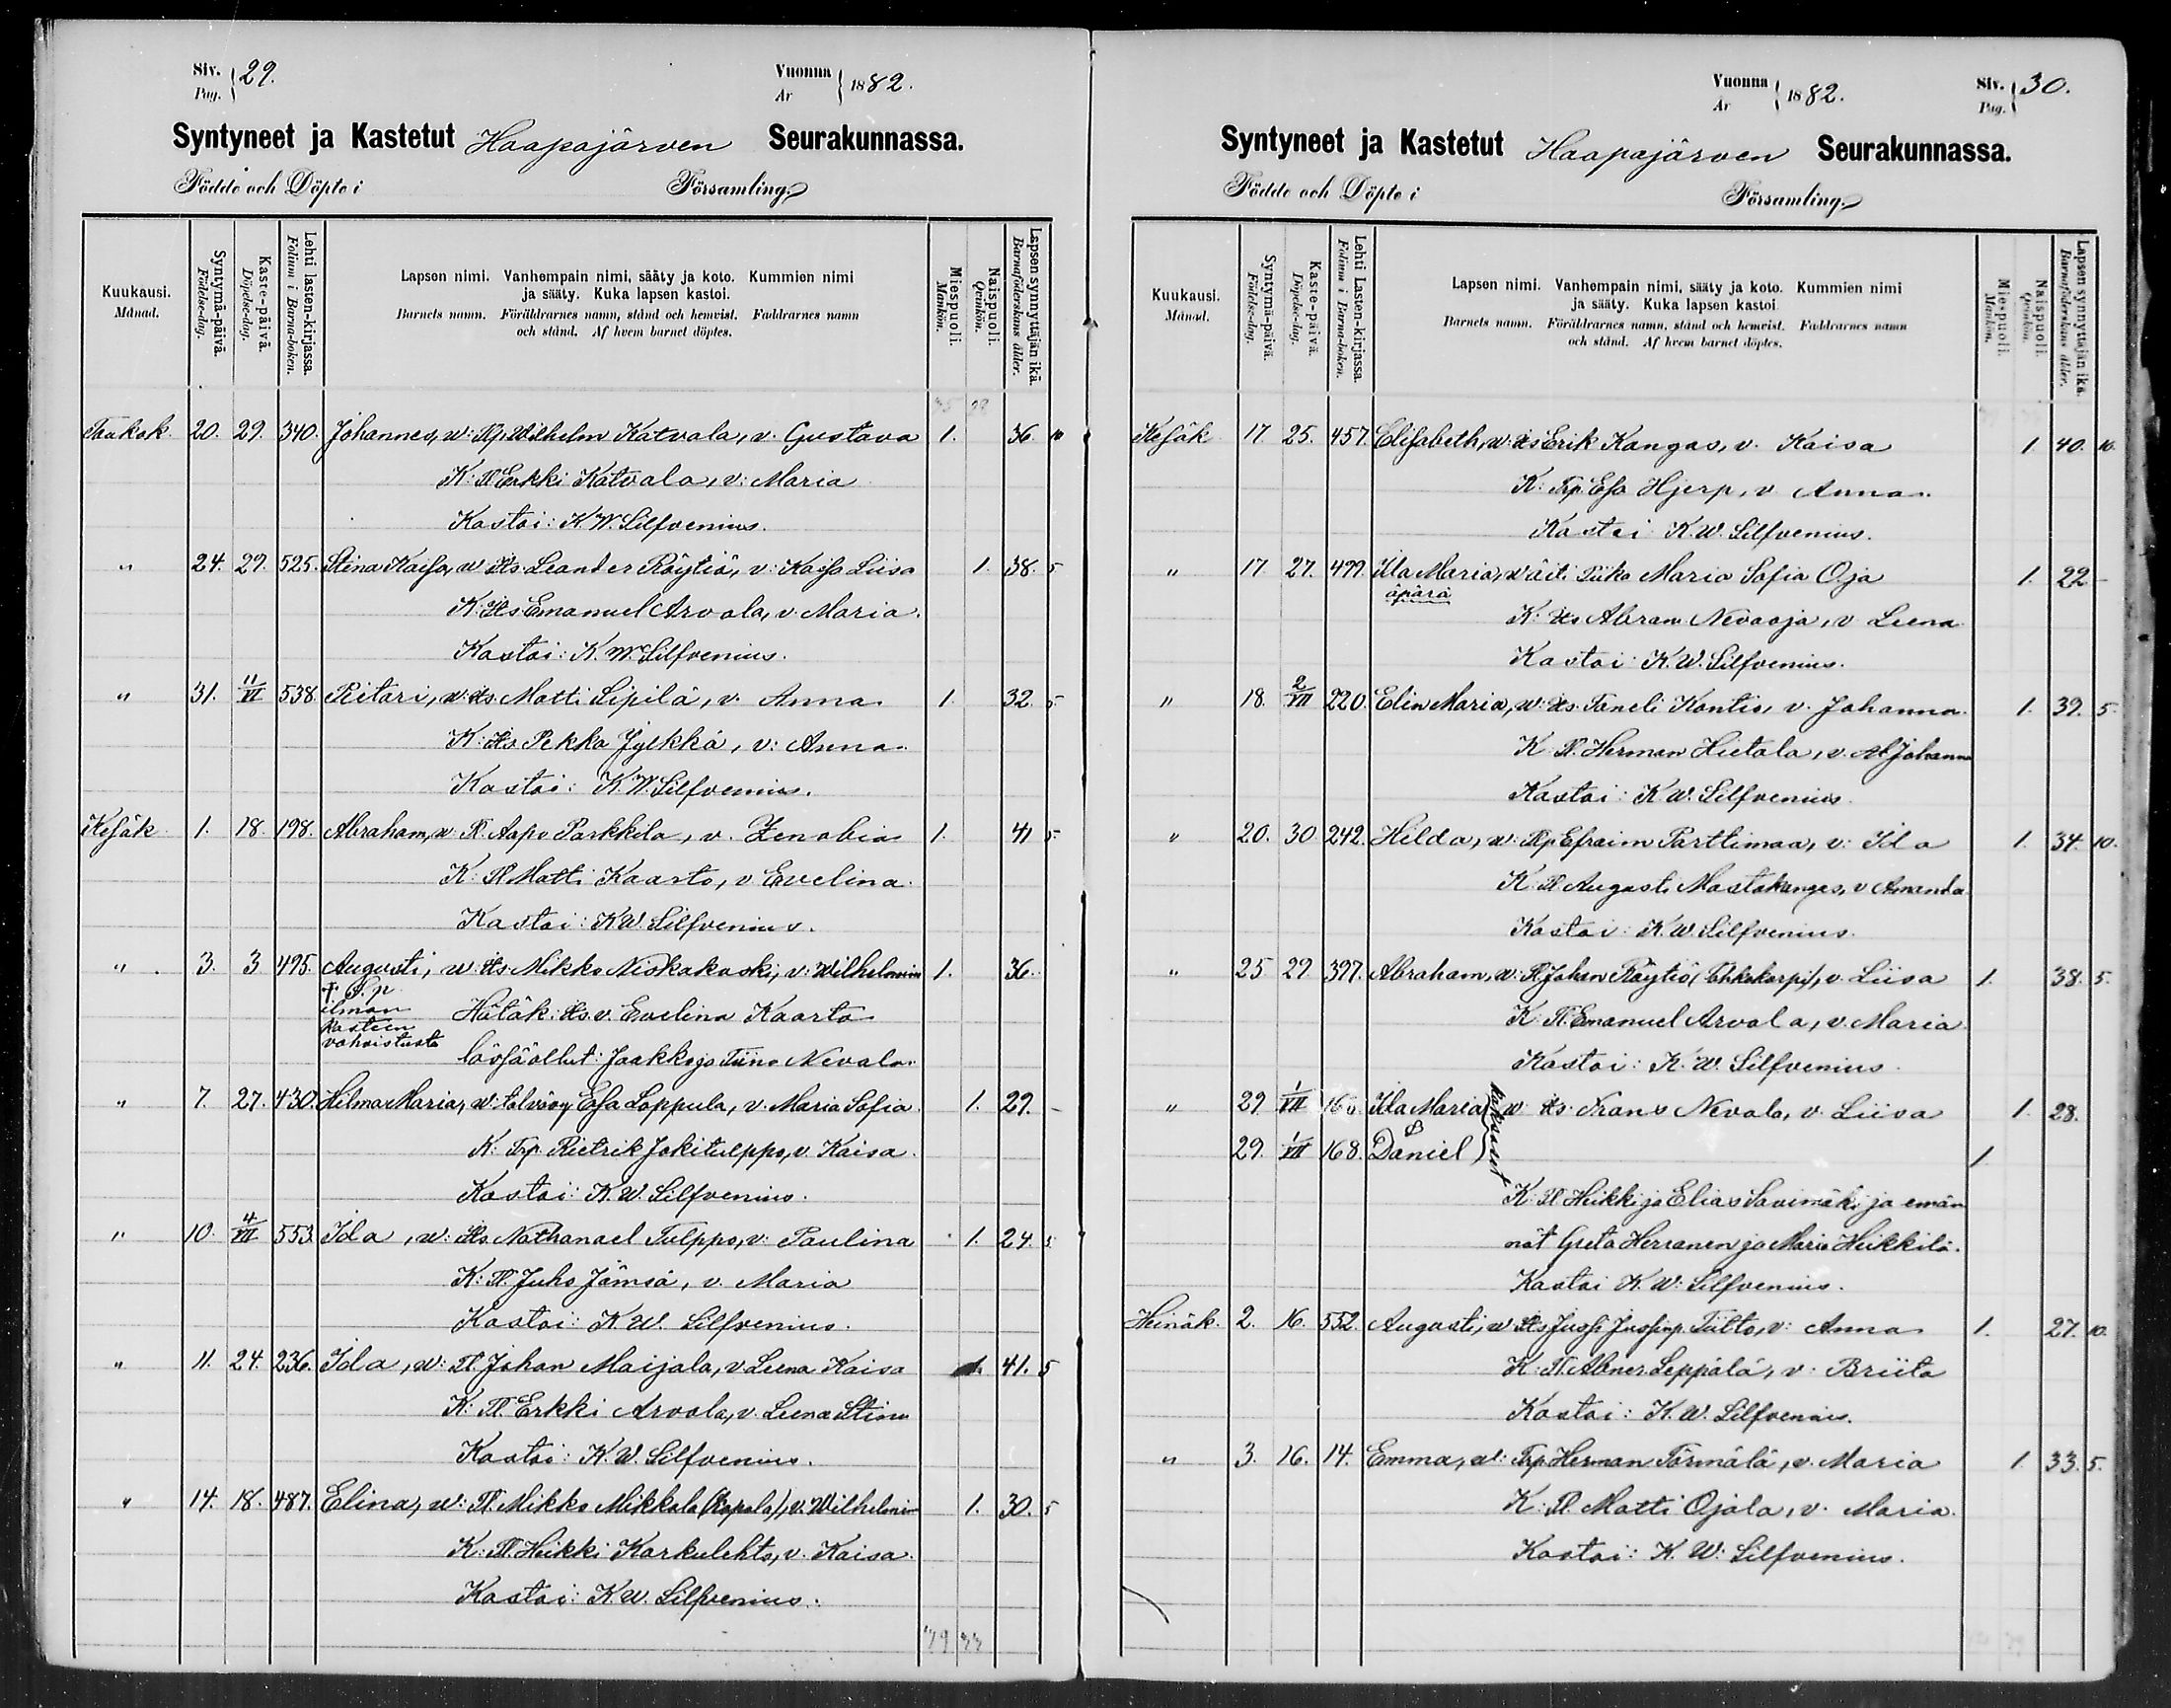 Siv. Pag. } 29.
Vuonna År } 1882.
Syntyneet ja Kastetut Haapajärven Seurakunnassa.
Födde och Döpte i Församling.
Kuukausi. Månad.
Syntymä-päivä. Födelse-dag.
Kaste-päivä. Döpelse-dag.
Lehti lasten-kirjassa. Folium i Barna-boken.
Lapsen nimi. Vanhempain nimi, sääty ja koto. Kummien nimi
ja sääty. Kuka lapsen kastoi.
Barnets namn. Föräldrarnes namn, stånd och hemvist. Faddrarnes namn
och stånd. Af hvem barnet döptes.
Miespuoli. Mankön.
Naispuoli. Qvinkön.
Lapsen synnyttäjän ikä. Barnaföderskans ålder.
Toukok. 20. 29. 340. Johannes, w: Wilhelm Katvala, v. Gustava 1. 36. 10
K: Tl Erkki Katvala, v: Maria
Kastoi: K. W. Silfvenius.
" 24. 29. 525. Stina Kaisa, w. Its Leander Röytiö, v: Kaisa Liisa 1. 38. 5
K: Its Emanuel Arvola, v. Maria.
Kastoi: K. W. Silfvenius.
" 31. 11/VI 538. Pitari, w: Its. Matti Sipilä, v. Anna 1. 32. 5
K: Its Pekka Jylkkä, v: Anna
Kastoi: K. W. Silfvenius.
Kesäk. 1. 18. 198. Abraham, w. Tl. Aapo Parkkila, v. Zenobia 1. 41 5
K: Tl Matti Kaarto, v Evelina
Kastoi: K W. Silfvenius.
" 3. 3 495. Augusti, w: Its Mikko Niskakoski, v: Wilhelmin 1. 36.
ilman
kasteen
vahvistusta
Hätäk: Its. v. Evelina Kaarto
läsäollut: Jaakko ja Tiina Nevala.
" 7. 27. 430. Hilma Maria, w: Esa Loppula, v. Maria Sofia 1. 29. –
K: Trp. Pietrik Jokitulppo, v. Kaisa.
Kastoi: K. W. Silfvenius.
" 10. 4/VII 553. Ida, w: Its. Nathanael Tulppo, v: Paulina 1. 24. 5
K: Tl. Juho Jämsä, v. Maria
Kastoi: K. W. Silfvenius.
" 11. 24. 236. Ida, w: Tl. Johan Maijala, v Leena Kaisa 1. 41. 5
K: Tl. Erkki Arvola, v. Leena Stina
Kastoi: K. W. Silfvenius.
" 14. 18. 487. Elina, w: Tl. Mikko Mikkola (Kopola), v. Wilhelmin 1. 30. 5
K: Tl. Heikki Karkulehto, v. Kaisa.
Kastoi: K. W. Silfvenius.
Vuonna År } 1882.
Siv. Pag. } 30.
Syntyneet ja Kastetut Haapajärven Seurakunnassa.
Födde och Döpte i Församling.
Kuukausi. Månad.
Syntymä-päivä. Födelse-dag.
Kaste-päivä. Döpelse-dag.
Lehti Lasten-kirjassa. Folium i Barna-boken.
Lapsen nimi. Vanhempain nimi, sääty ja koto. Kummien nimi
ja sääty. Kuka lapsen kastoi
Barnets namn. Föräldrarnes namn, stånd och hemvist. Faddrarnes namn
och stånd. Af hvem barnet döptes.
Miespuoli. Mankön.
Naispuoli. Qvinkön.
Lapsen synnyttäjän ikä. Barnaföderskans ålder.
Kesäk 17 25. 457. Elisabeth, w: Its Erik Kangas, v. Kaisa 1. 40. 10.
K: Trp. Esa Hjerp, v Anna.
Kastoi K. W. Silfvenius.
" 17 27. 499. Ida Maria, w äiti Piika Maria Sofia Oja 1. 22 –
äpärä
K: Its. Abram Nevaoja, v Leena
Kastoi K. W. Silfvenius.
" 18. 2/VII 220. Elin Maria, w: Its. Taneli Kontio, v. Johanna 1. 39. 5.
K Tl. Herman Hietala, v. Johanna
Kastoi: K. W. Silfvenius.
" 20. 30 242. Hilda, w: Efraim Parttimaa, v: Ida 1. 34. 10.
K Tl Augusti Mastokangas, v Amanda
Kastoi: K. W. Silfvenius.
" 25 29 397. Abraham, w: Tl Johan Röytiö (Tohkokorpi), v. Liisa 1. 38. 5.
K Tl. Emanuel Arvola, v. Maria
Kastoi: K. W. Silfvenius.
" 29 1/VII 168. Ida Maria w Its. Frans Nevala, v. Liisa 1. 28.
kaksoset
29. 1/VII 168. Daniel 1
K: Tl Heikki ja Elias Savimäki ja emän
nät Greta Herranen ja Maria Heikkilä.
Kastoi K. W. Silfvenius.
Heinäk. 2. 16. 552. Augusti, w Its Jussi Jussinp. Tiitto, v: Anna 1. 27. 10.
K: Tl. Abner Leppälä, v: Briita
Kastoi: K. W. Silfvenius.
" 3. 16. 14. Emma, w: Trp. Herman Törmälä, v. Maria 1 33. 5.
K: Tl. Matti Ojala, v. Maria.
Kastoi: K. W. Silfvenius.